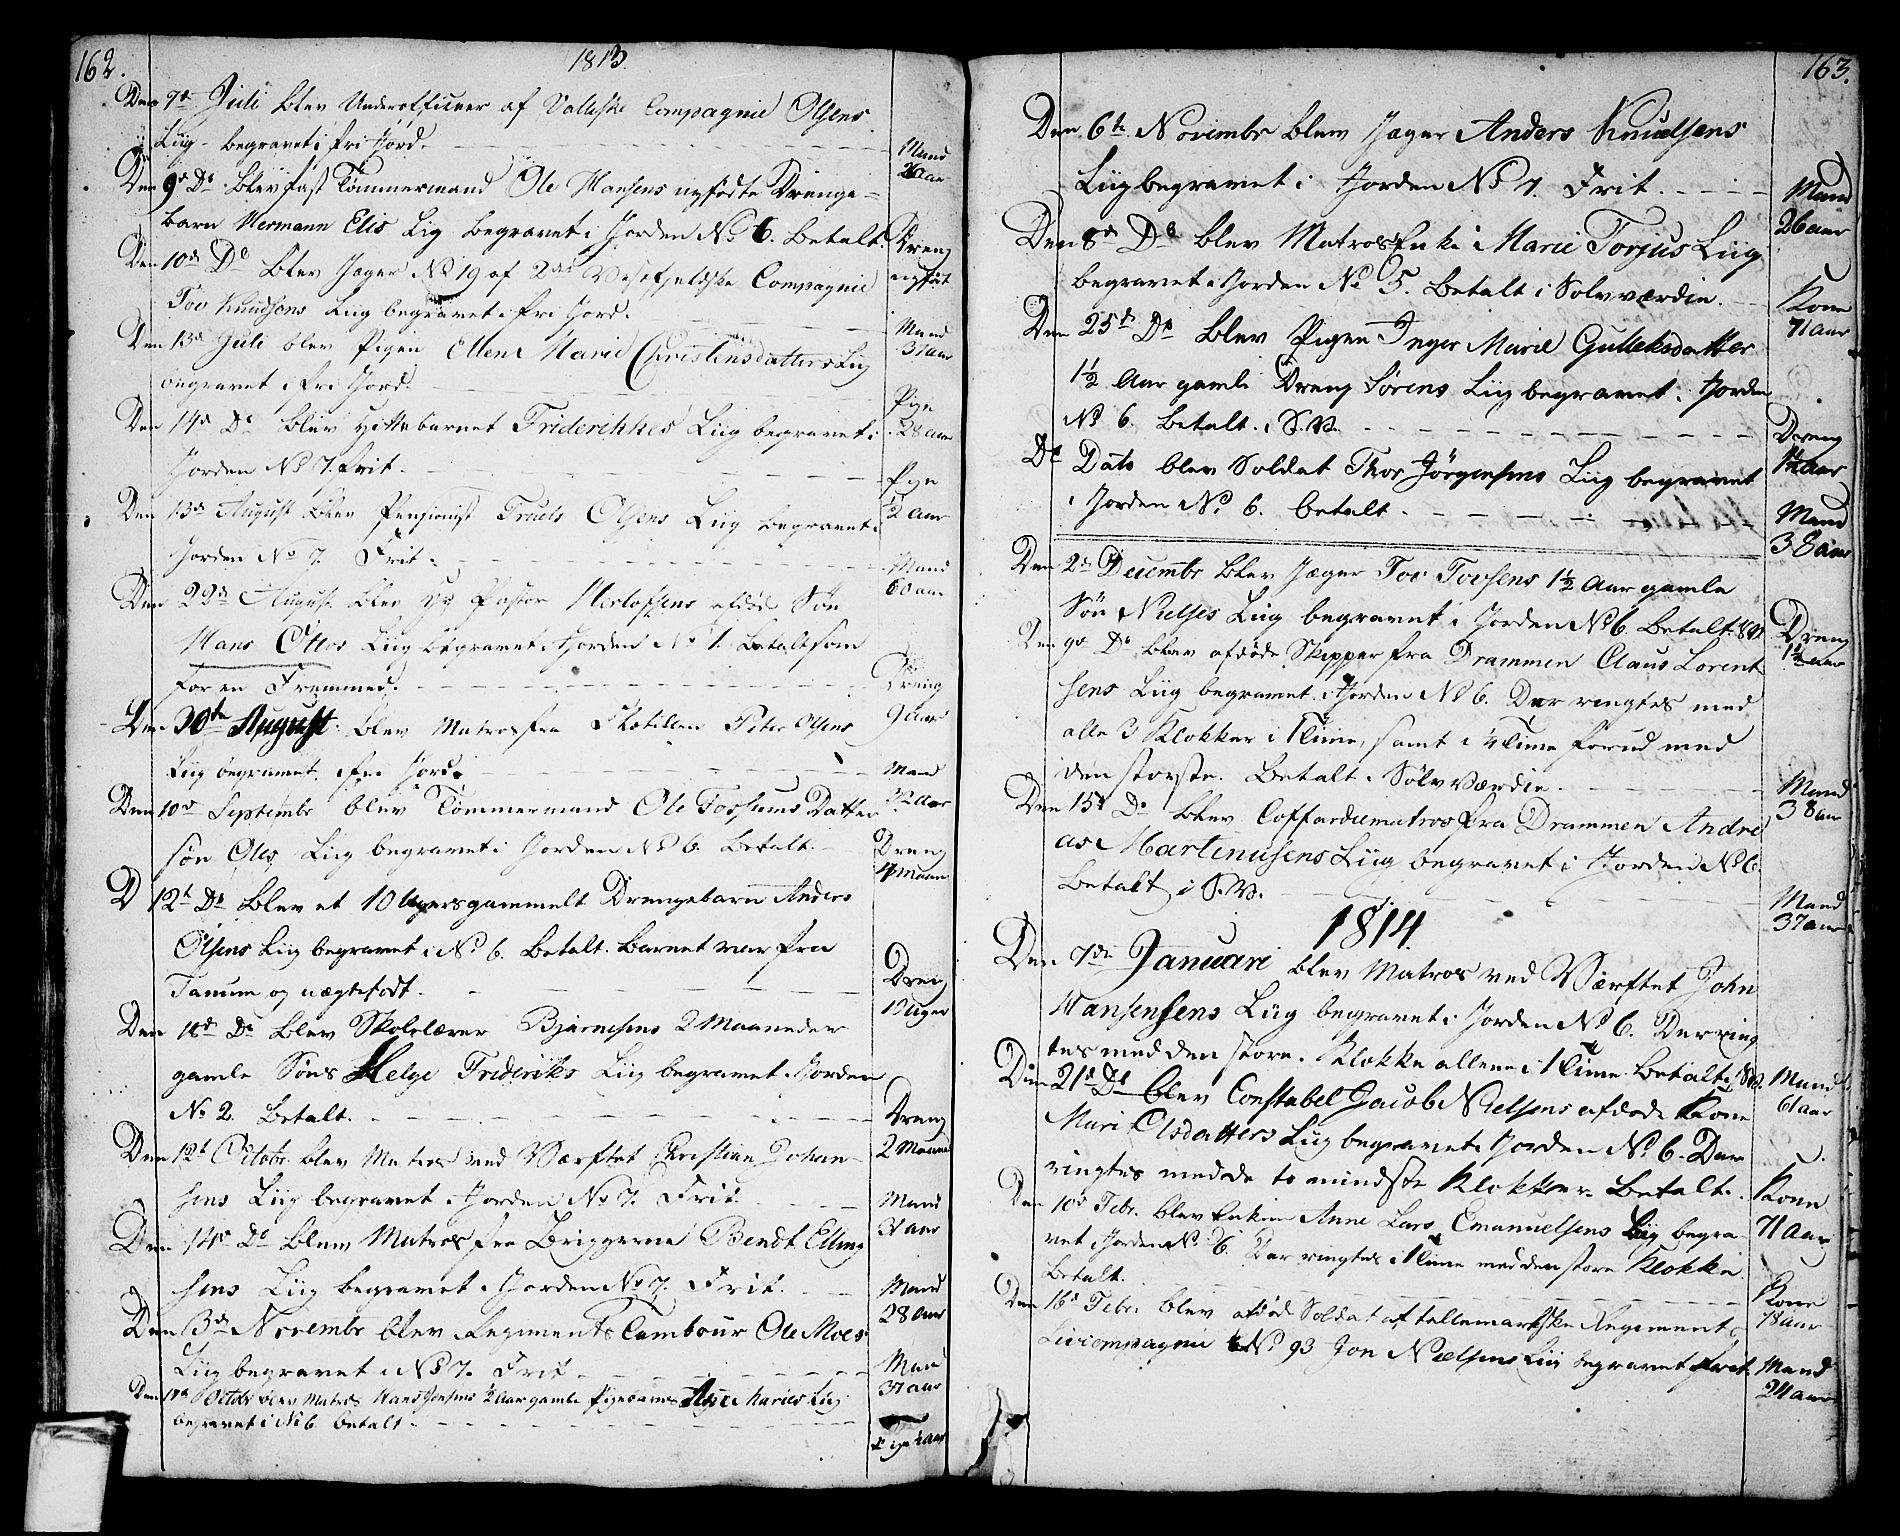 162.
1813.
Den 7de Juli blev Underofficeer af Compagnie Olsens
Liig begravet i fri Jord.
Mand
26 aar
Den 9de Do blev fast Tømmermand Ole Hansens nyfødte Drenge=
barn Hermann Elis Lig begravet i Jorden No 6. Betalt.
Dreng
nyfødt
Den 10de Do blev Jæger No 19 af 2det Vesterfjeldske Compagnie
Tov Knudsens Liig begravet i fri Jord.
Mand
31 aar
Den 13de Juli blev Pigen Ellen Marie Christensdatters Liig
begravet i fri Jord.
Pige
28 aar
Den 14de Do blev Hittebarnet Friderikkes Liig begravet i
Jorden No 7. Frit.
Pige
1/2 aar
Den 13de August blev Pensionist Truels Olsens Liig begravet i
Jorden No 7. Frit.
Mand
60 aar
Den 22de August blev Pastor Herlofsens afdøde Søn
Hans Ottos Liig begravet i Jorden No 1. Betalt som
for en Fremmed.
Dreng
9 aar
Den 30te August blev Matros fra Flotillen Peter Olsens
Liig begravet i fri Jord.
Mand
32 aar
Den 10de Septembr blev Tømmermand Ole Fossums Datter
søn Oles Liig begravet i Jorden No 6. Betalt.
Dreng
4 maan
D 12te Do blev et 10 Ugers gammelt Drengebarn Anders
Olsens Liig begravet i No 6. Betalt. Barnet var fra
Tanum og uægtefødt.
Dreng
Uger
Den 18de Do blev Skolelærer Bjørnesens 2 Maaneder
gamle Søns Helge Frideriks Liig begravet i Jorden
No 2. Betalt.
Dreng
2 Maaned
Den 12te Octobr. blev Matros ved Værftet Christian Johan
sens Liig begravet i Jorden No 7. Frit.
Mand
31 aar
Den 14de Do blew Matros fra Briggerne Bendt Elling
sens Liig begravet i Jorden No 7. Frit.
Mand
28 aar
Den 3de Novembr blev Regiments Tambour Ole Moes
Liig begravet i No 7. Frit
Mand
37 aar
Den Octobr blev Matros Hans Jensens 1/2 Aar gamle Pigebarns Maries Liig
begravet i No 6. betalt
Pige 1/2 aar
163.
Den 6te Novembr blew Jæger Anders Knudsens
Liig begravet i Jorden No 7. Frit.
Mand
26 aar
Den 8de Do blev Matros Enke Marie Torjus Liig
begravet i Jorden No 5. Betalt i Sølvværdie.
Kone
71 aar
Den 25de Do blev Pigen Inger Marie Gulleksdatter
1½ Aar gamle Dreng Sørens Liig begravet i Jorden
No 6. Betalt i S.V.
Dreng
1½ aar
Do Dato blev Soldat Thor Jørgensens Liig begravet
i Jorden No 6. betalt.
Mand
38 aar
Den 2de Decembr blev Jæger Tov Tovsens 1½ Aar gamle
Søn Nielses Liig begravet i Jorden No 6. Betalt. S.V.
Dreng
1½ aar
Den 9de Do blev afdøde Skipper fra Drammen Claus Lorent
sens Liig begravet i Jorden No 6. Der ringtes med
alle 3 Klokker i 1 Time, samt i ¼ Time forud med
den største. Betalt i Sølvværdie.
Mand
38 aar
Den 15de Do blev Coffardiematros fra Drammen Andre
as Martinusens Liig begravet i Jorden No 6
Betalt i S.V.
Mand
37 aar
1814
Den 7de Januari blev Matros ved Værftet John
Hansensens Liig begravet i Jorden No 6. Der ring
tes med den store Klokke allene i 1 Time. Betalt i S.V.
Mand
61 aar
Den 21de Do blev Constabel Jacob Nielsens afdøde Kone
Mari Olsdatters Liig begravet i Jorden No 6. Der
ringtes med de to mindste Klokker. Betalt.
Kone
71 Aar
Den 10de Febr. blev Enken Anne Lars Emanuelsens Liig begra
vet i Jorden No 6. Der ringtes i 1 Time med den store Klokke.
Betalt.
Kone
78 aar
Den 16de Febr. blev afdød Soldat af tellemarkske Regiment
Livcompagnie No 93 Jon Nielsens Liig begravet frit.
Mand
24 aar